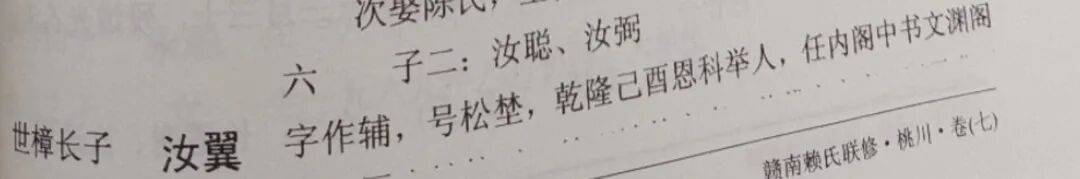 次娶陈氏，
六
子二：汝聪、汝弼
世樟长子 汝翼 字作辅，号松埜，乾隆己酉恩科举人，任内阁中书文渊阁
赣南赖氏联修·桃川·卷(七)